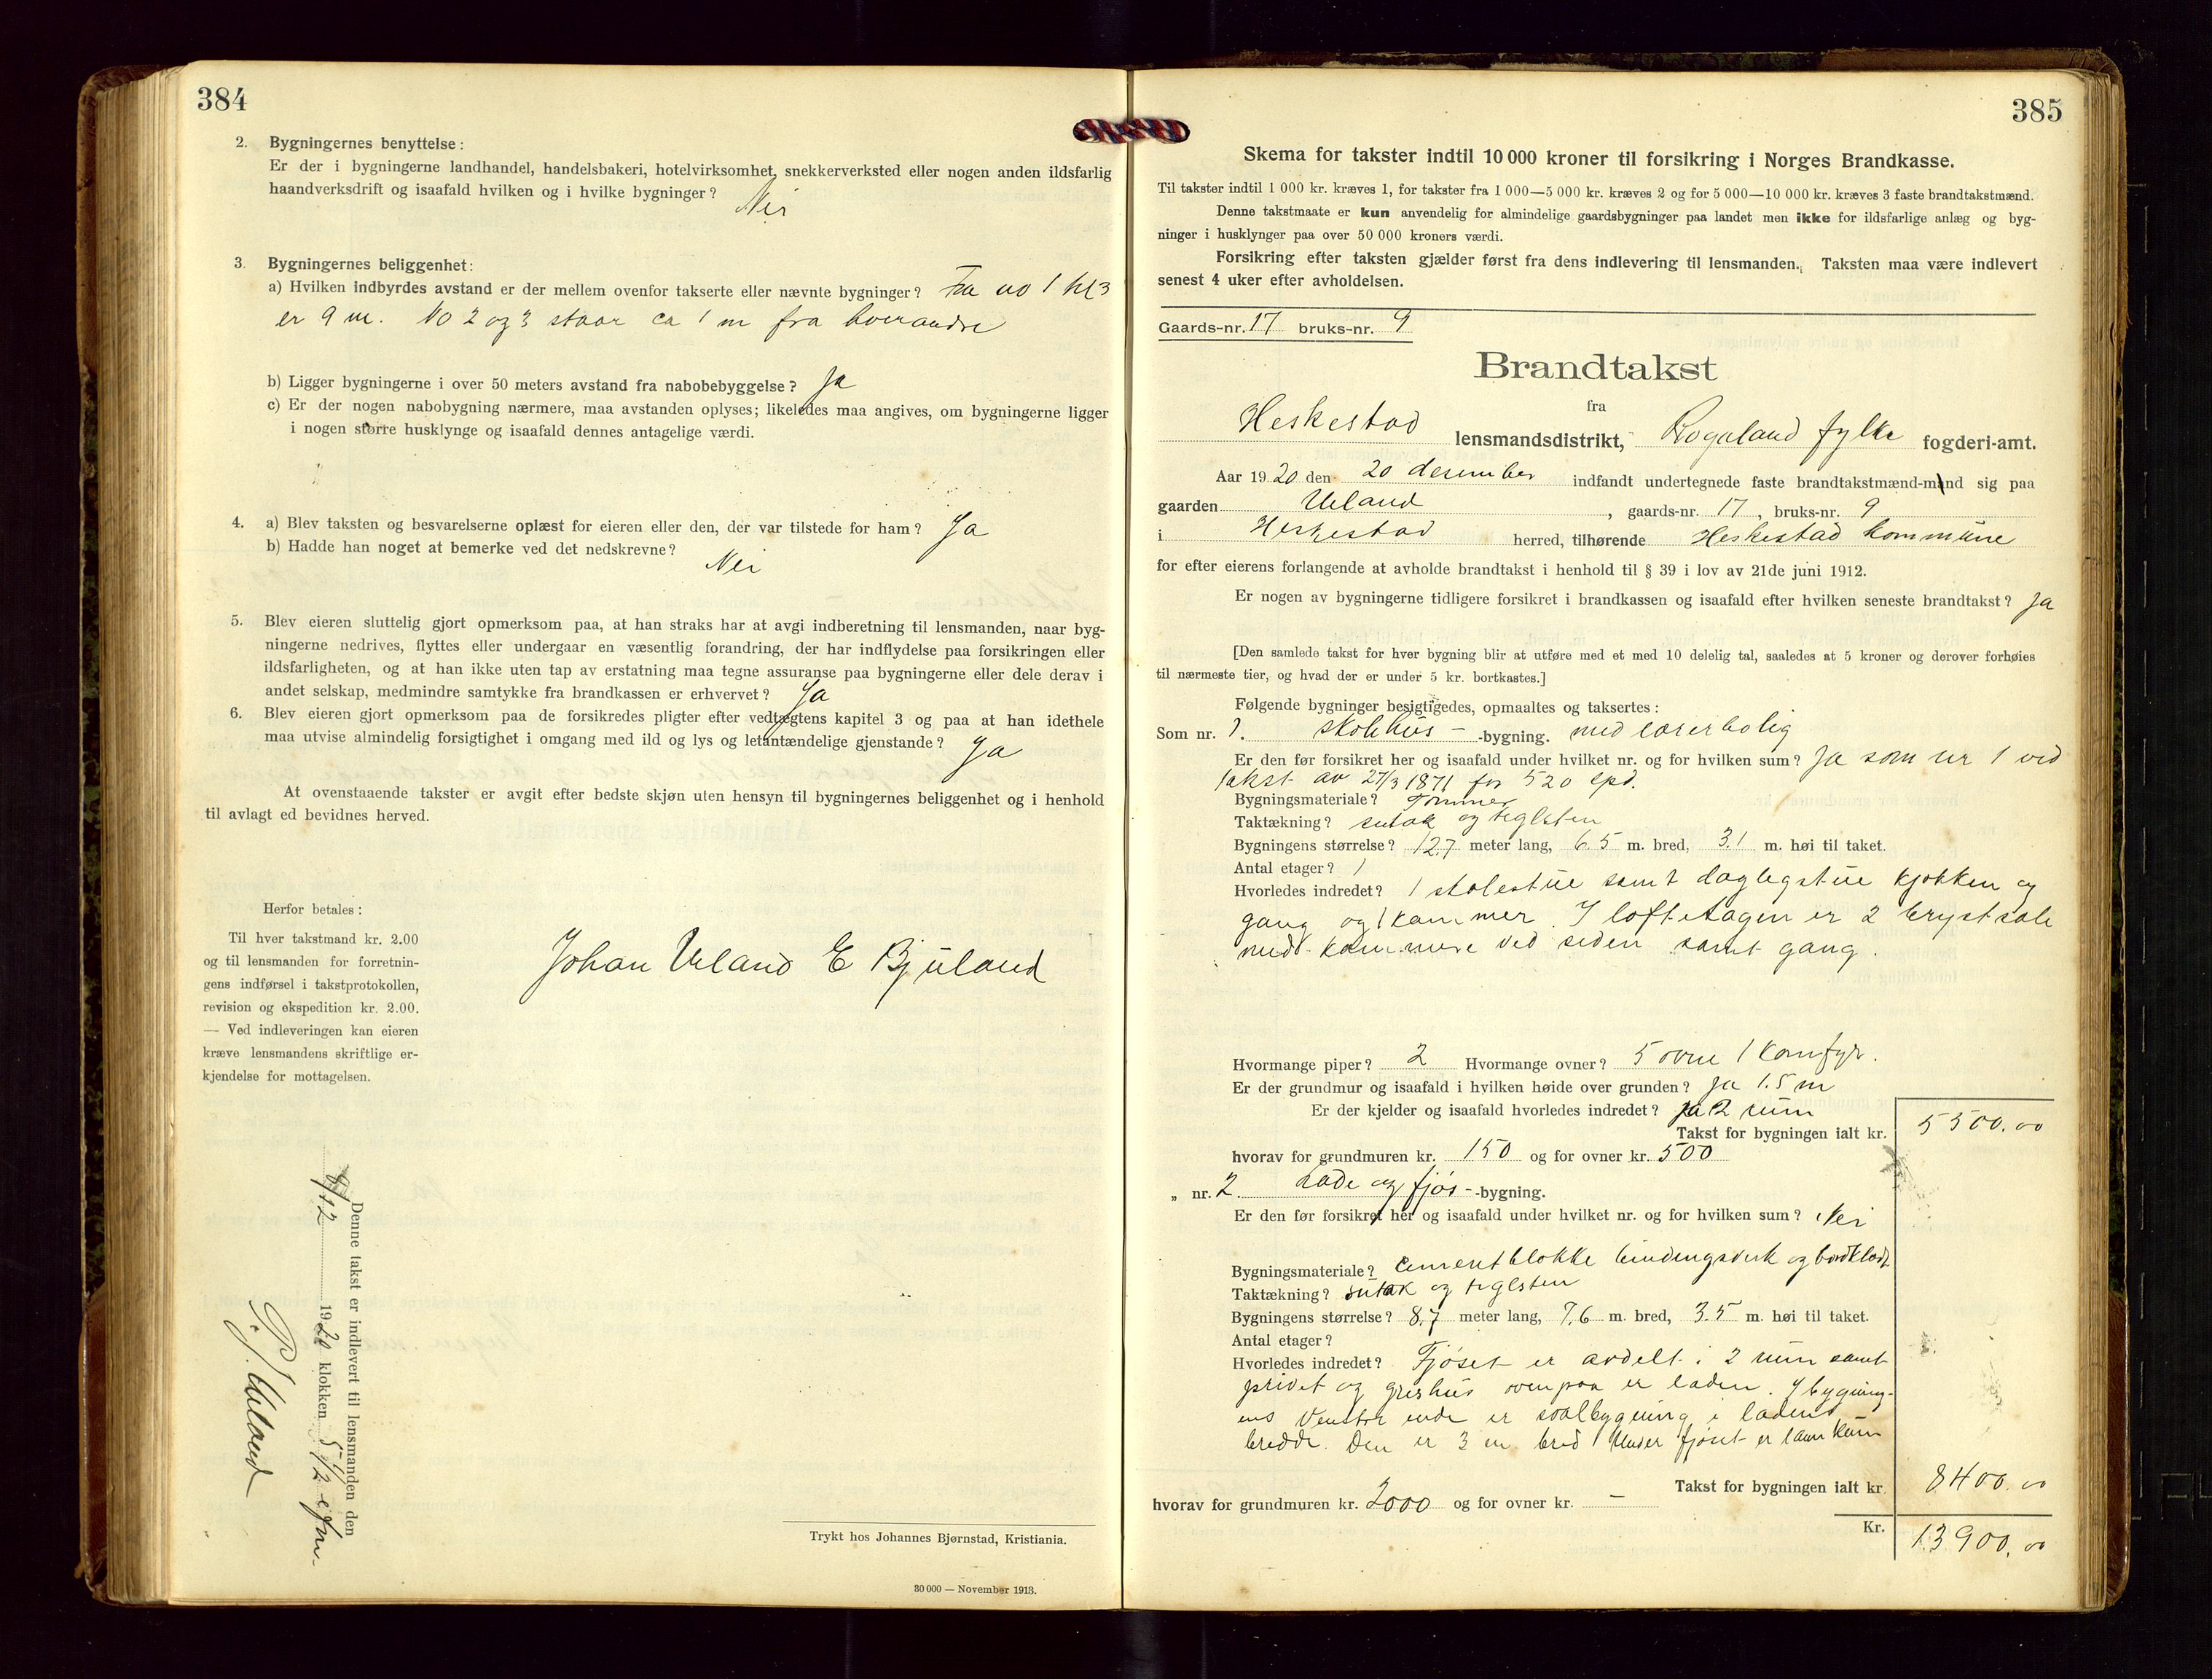 384
2. Bygningernes benyttelse:
Er der i bygningerne landhandel, handelsbakeri, hotelvirksomhet, snekkerverksted eller nogen anden ildsfarlig
haandverksdrift og isaafald hvilken og i hvilke bygninger? Nei
3. Bygningernes beliggenhet:
a) Hvilken indbyrdes avstand er der mellem ovenfor takserte eller nævnte bygninger? Fra no 1 til 3
er 9 m. No 2 og 3 staar ca 1 m fra hverandre
b) Ligger bygningerne i over 50 meters avstand fra nabobebyggelse? Ja
c) Er der nogen nabobygning nærmere, maa avstanden oplyses; likeledes maa angives, om bygningerne ligger
i nogen større husklynge og isaafald dennes antagelige værdi.
4. a) Blev taksten og besvarelserne oplæst for eieren eller den, der var tilstede for ham? Ja
b) Hadde han noget at bemerke ved det nedskrevne? Nei
5. Blev eieren sluttelig gjort opmerksom paa, at han straks har at avgi indberetning til lensmanden, naar byg-
ningerne nedrives, flyttes eller undergaar en væsentlig forandring, der har indflydelse paa forsikringen eller
ildsfarligheten, og at han ikke uten tap av erstatning maa tegne assuranse paa bygningerne eller dele derav i
andet selskap, medmindre samtykke fra brandkassen er erhvervet? Ja
6. Blev eieren gjort opmerksom paa de forsikredes pligter efter vedtægtens kapitel 3 og paa at han idethele
maa utvise almindelig forsigtighet i omgang med ild og lys og letantændelige gjenstande? Ja
At ovenstaaende takster er avgit efter bedste skjøn uten hensyn til bygningernes beliggenhet og i henhold
til avlagt ed bevidnes herved.
Herfor betales:
Til hver takstmand kr. 2.00
og til lensmanden for forretnin-
gens indførsel i takstprotokollen,
revision og ekspedition kr. 2.00.
— Ved indleveringen kan eieren
kræve lensmandens skriftlige er-
kjendelse for mottagelsen.
Johan Ueland E Bjuland
Denne takst er indlevert til lensmanden den
8/12 1920 klokken 5 1/2 efm.
P. J. Ueland
Trykt hos Johannes Bjørnstad, Kristiania.
30 000 — November 1913.
385
Skema for takster indtil 10 000 kroner til forsikring i Norges Brandkasse.
Til takster indtil 1 000 kr. kræves 1, for takster fra 1 000—5 000 kr. kræves 2 og for 5 000—10 000 kr. kræves 3 faste brandtakstmænd.
Denne takstmaate er kun anvendelig for almindelige gaardsbygninger paa landet men ikke for ildsfarlige anlæg og byg-
ninger i husklynger paa over 50 000 kroners værdi.
Forsikring efter taksten gjælder først fra dens indlevering til lensmanden. Taksten maa være indlevert
senest 4 uker efter avholdelsen.
Gaards-nr. 17 bruks-nr. 9
Brandtakst
fra
Heskestad lensmandsdistrikt, Rogaland fylke fogderi-amt.
Aar 1920 den 20 desember indfandt undertegnede faste brandtakstmænd-mand sig paa
gaarden Ueland, gaards-nr. 17, bruks-nr. 9
i Heskestad herred, tilhørende Heskestad kommune
for efter eierens forlangende at avholde brandtakst i henhold til § 39 i lov av 21de juni 1912.
Er nogen av bygningerne tidligere forsikret i brandkassen og isaafald efter hvilken seneste brandtakst? Ja
[Den samlede takst for hver bygning blir at utføre med et med 10 delelig tal, saaledes at 5 kroner og derover forhøies
til nærmeste tier, og hvad der er under 5 kr. bortkastes.]
Følgende bygninger besigtigedes, opmaaltes og taksertes:
Som nr. 1. skolehus - -bygning. med lærerbolig
Er den før forsikret her og isaafald under hvilket nr. og for hvilken sum? Ja som nr 1 ved
takst av 27/3 1871 for 520 spd.
Bygningsmateriale? Tømmer
Taktækning? sutak og teglsten
Bygningens størrelse? 12.7 meter lang, 6.5 m. bred, 3.1 m. høi til taket.
Antal etager? 1
Hvorledes indredet? 1 skolestue samt daglegstue kjøkken og
gang og 1 kammer. I loftetagen er 2 brystsale
med kammere ved siden samt gang.
Hvormange piper? 2 Hvormange ovner? 5 ovne 1 komfyr.
Er der grundmur og isaafald i hvilken høide over grunden? Ja 1.5 m
Er der kjelder og isaafald hvorledes indredet? Ja 2 rum
Takst for bygningen ialt kr. 5500.00
hvorav for grundmuren kr. 150 og for ovner kr. 500
„ nr. 2. Lade og fjøs - -bygning.
Er den før forsikret her og isaafald under hvilket nr. og for hvilken sum? Nei
Bygningsmateriale? Cementblokke bindingsverk og bordklædt
Taktækning? sutak og teglsten
Bygningens størrelse? 8.7 meter lang, 7.6 m. bred, 3.5 m. høi til taket.
Antal etager?
Hvorledes indredet? Fjøset er avdelt i 2 rum samt
privet og grishus ovenpaa er laden. I bygning-
ens venstre ende er svalbygning i ladens
bredde. Den er 3 m bred Under fjøset er
Takst for bygningen ialt kr. 8400.00
hvorav for grundmuren kr. 2000 og for ovner kr. -
Kr. 13900.00